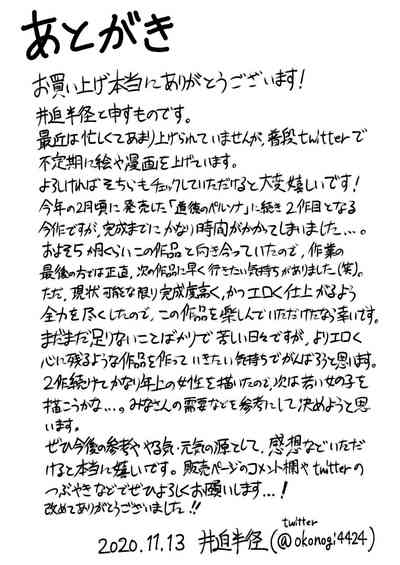 あとがき
お買い上げ本当にありがとうございます!
井迫半径と申すものです。
最近は忙しくてあまり上げられていませんが、普段twitterで
不定期に絵や漫画を上げています。
よろしければそちらもチェックしていただけると大変嬉しいです!
今年の2月頃に発売した「直後のペルソナ」に続き2作目となる
今作ですが、完成までにかなり時間がかかってしまいました…。
およそ5か月くらいこの作品と向き合っていたので、作業の
最後の方では正直、次の作品に早く行きたい気持ちがありました(笑)。
ただ、現状可能な限り完成度高く、かつエロく仕上がるよう
全力を尽くしたので、この作品を楽しんでいただけたなら幸いです。
まだまだ足りないことばかりで苦しい日々ですが、よりエロく
心に残るような作品を作っていきたい気持ちでがんばろうと思います。
2作続けてかなり年上の女性を描いたので、次は若い女の子を
描こうかな…。みなさんの需要などを参考にして決めようと思
います。
ぜひ今後の参考ややる気・元気の源として、感想などいただ
けると本当に嬉しいです。販売ページのコメント欄やtwitterの
つぶやきなどでぜひよろしくお願いします…!
改めてありがとうございました!!
twitter
2020.11.13 井迫半径(@okonogi4424)